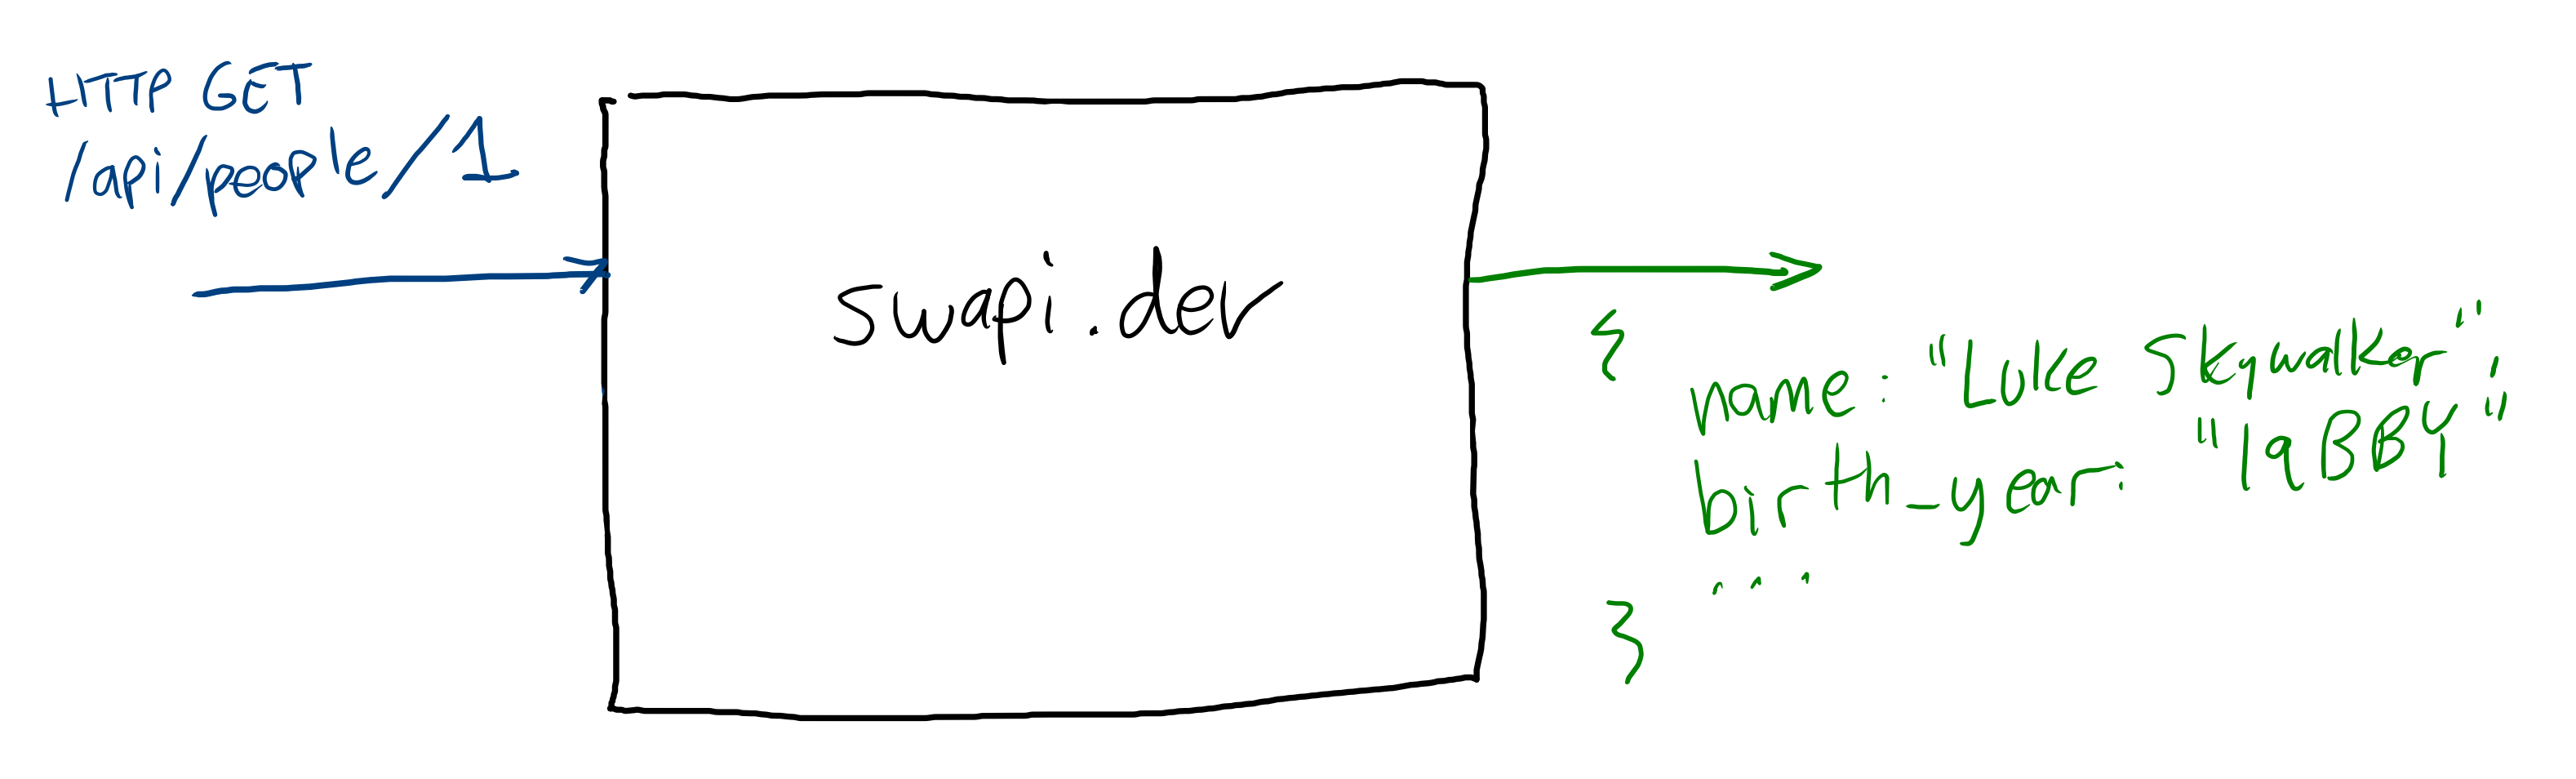 HTTP GET
/api/people/1
swapi.dev
{
name: "Luke Skywalker",
birth_year: "19BBY",
...
}